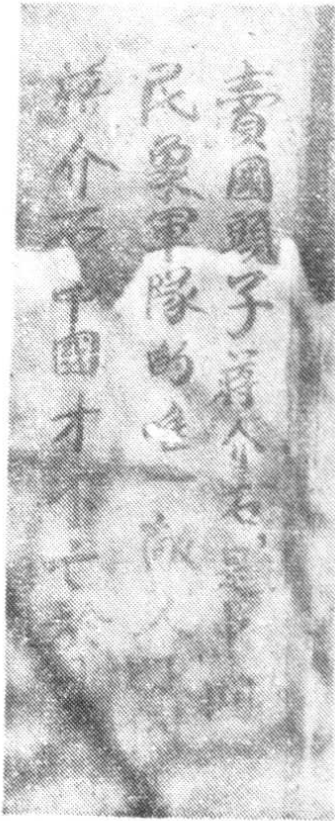 賣國頭子蔣介石，是
民眾軍隊的 敵
蔣介石中國才不亡